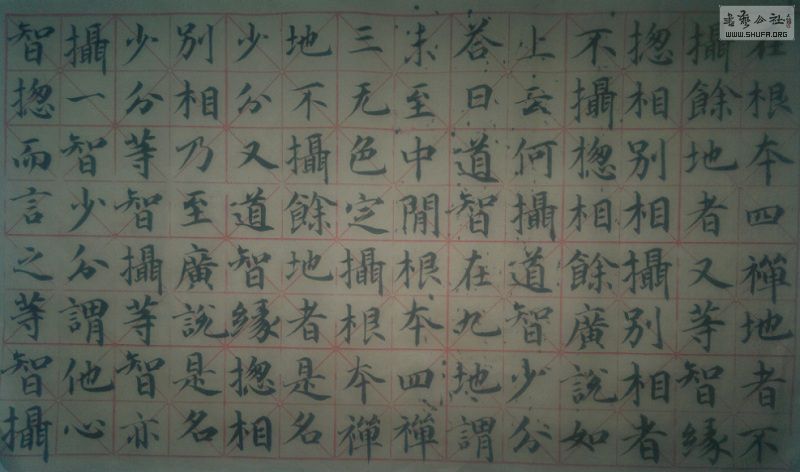 在根本四禪地者不
攝餘地者又等智緣
揔相別相攝別相者
不攝揔相餘廣說如
上云何攝道智少分
荅曰道智在九地謂
未至中閒根本四禪
三无色定攝根本禪
地不攝餘地者是名
少分又道智緣揔相
別相乃至廣說是名
少分等智攝等智亦
攝一智少分謂他心
智揔而言之等智攝
書藝公社
WWW.SHUFA.ORG